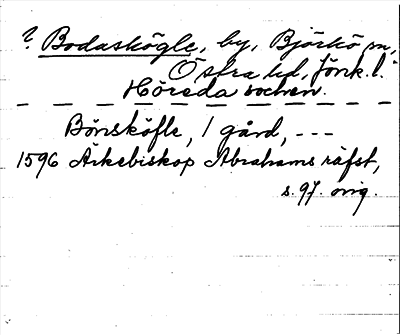 ? Bodaskögle, by, Björkö sn,
Östra hd, Jönk. l.
Höreda socken.
Bönsköfle, 1 gård, ---
1596 Ärkebiskop Abrahams räfst,
s. 97. orig.